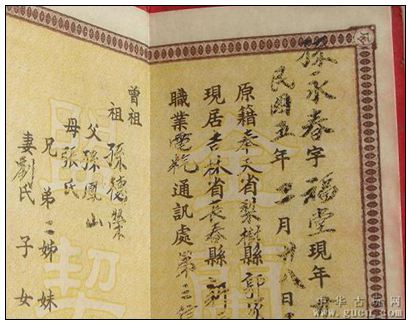 孫永春字福堂現年
民國五年二月十八日
原籍奉天省梨樹縣郭家
現居吉林省長春縣
職業電乾通訊處第三
曾祖
祖 孫德榮
父孫鳳山
母張氏
兄弟二姊妹
妻劉氏 子女
中华古玩网
www.gucn.com